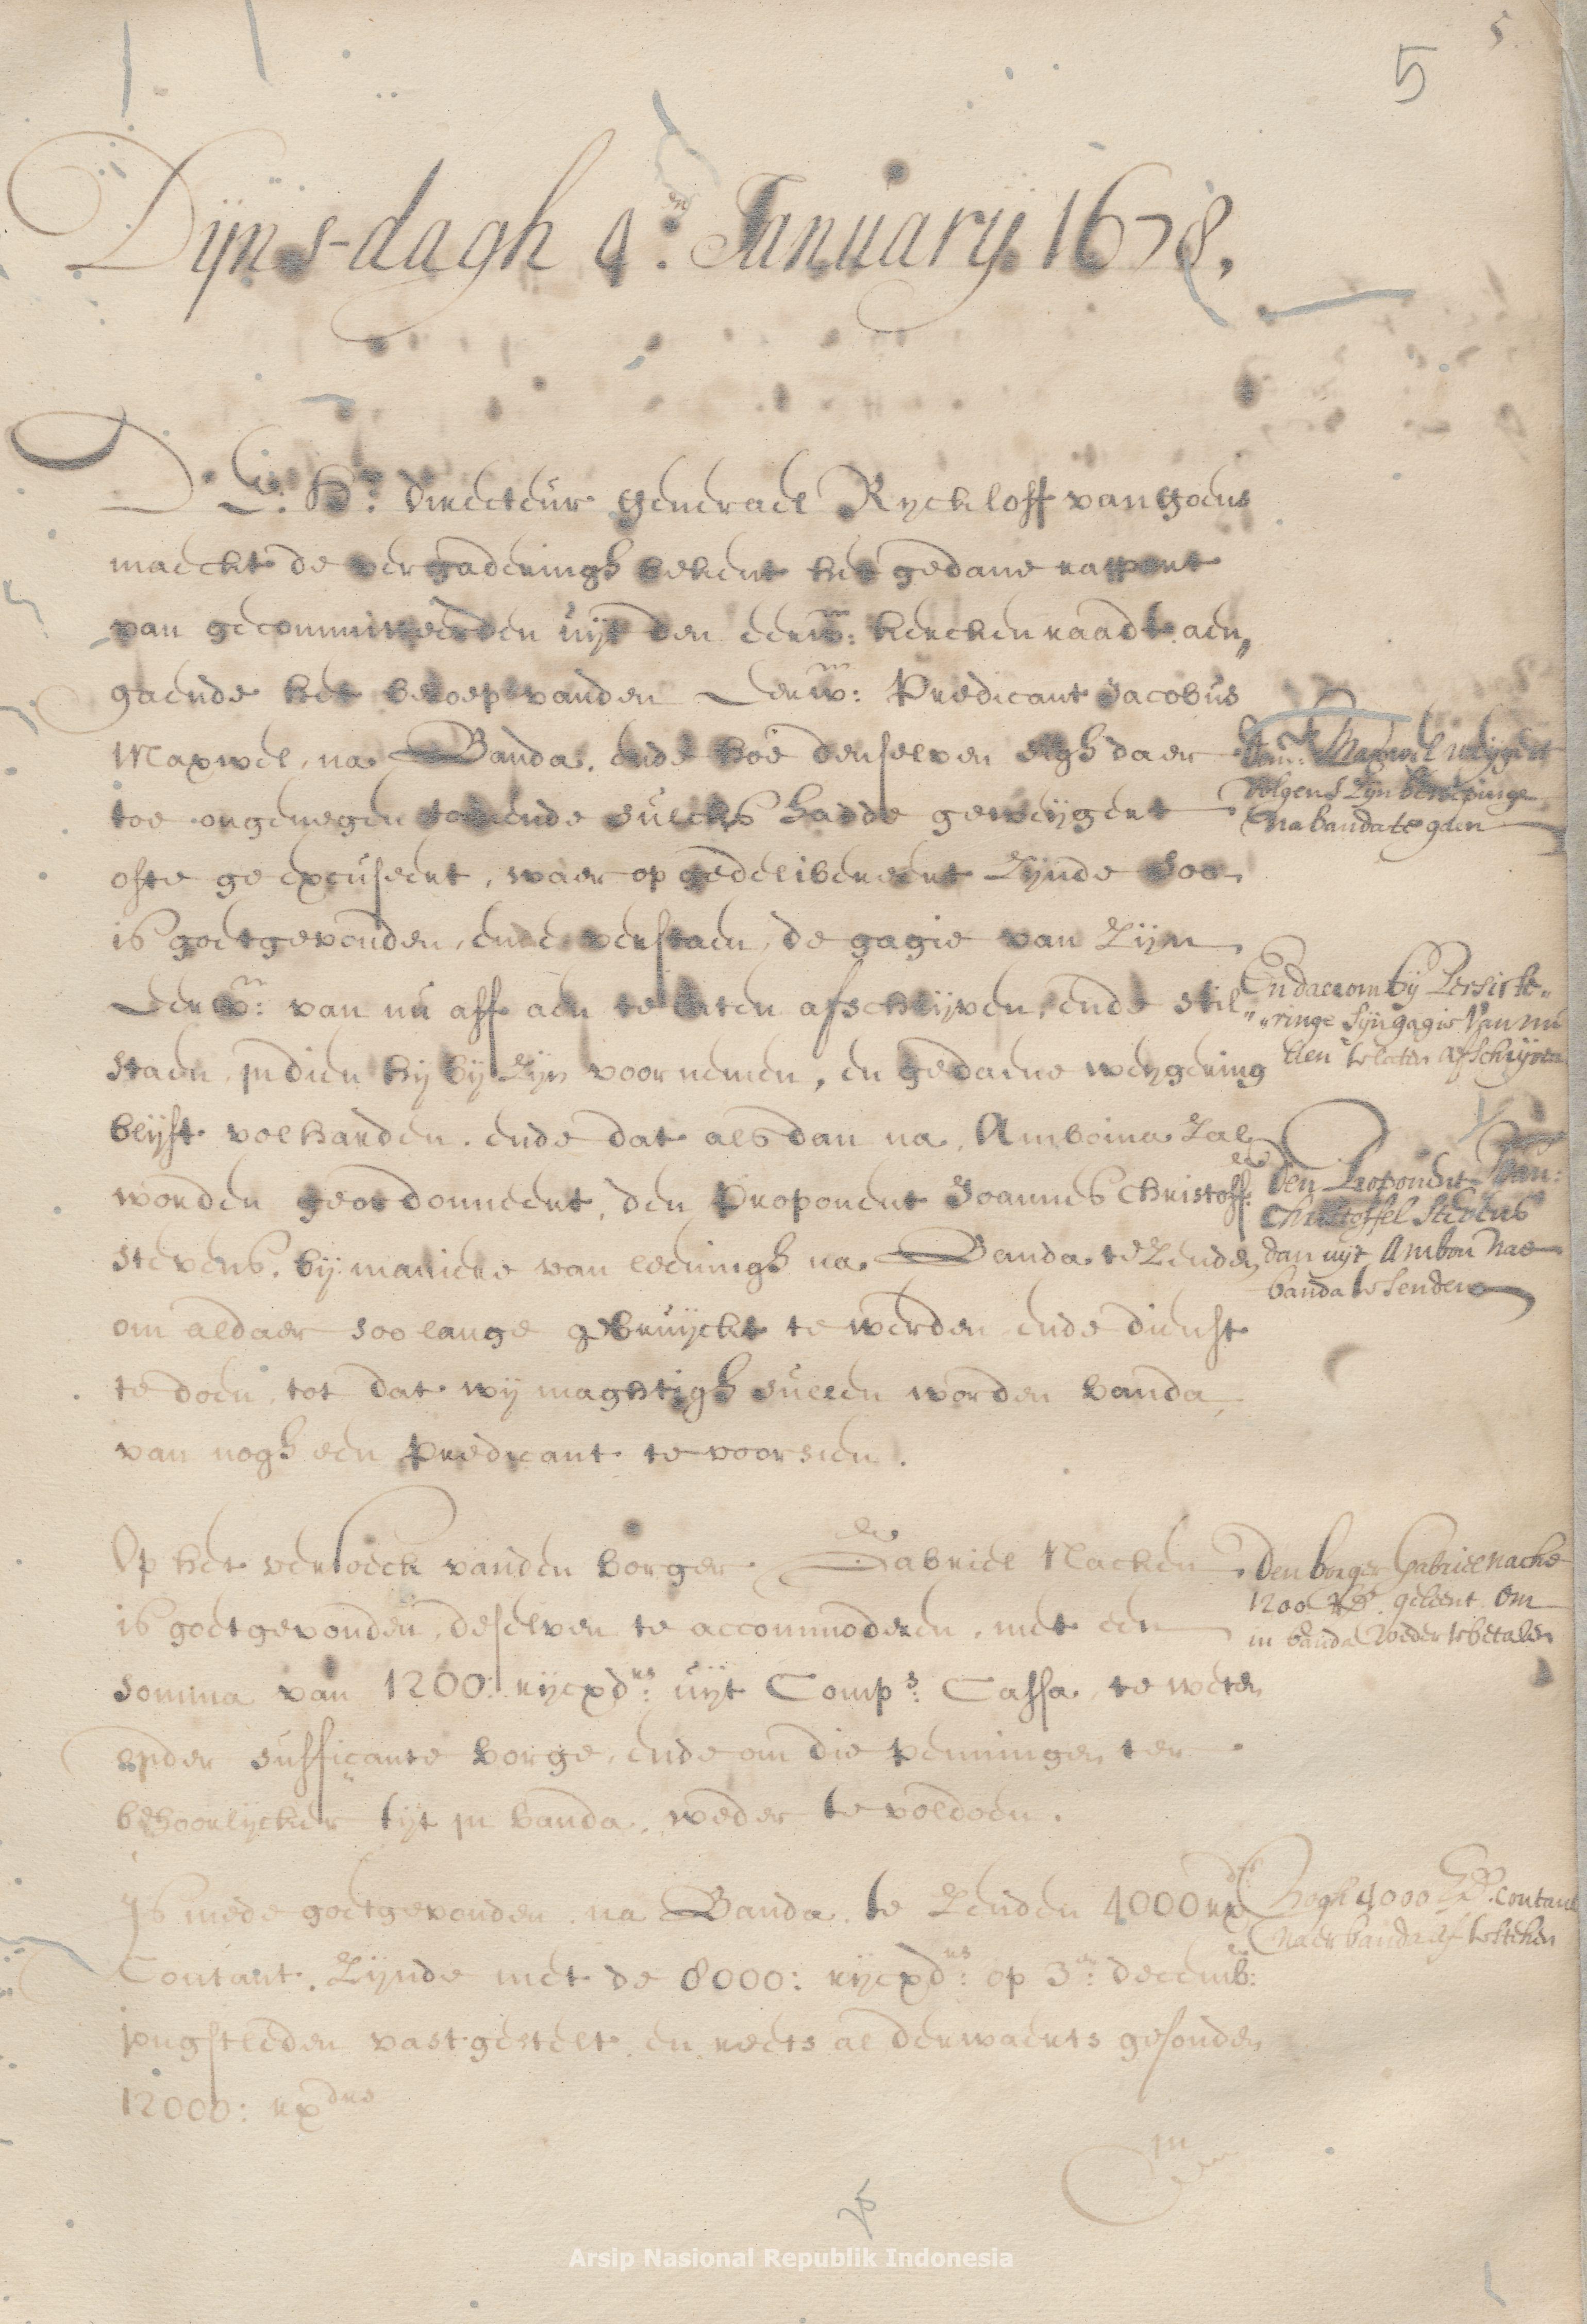 5
5
Dijns-dagh 4.en January 1678,
D' E: Hr: directeur generael Ryckloff van goens
maeckt de vergaderingh bekent het gedane rapport
van gecommitteerden uijt den eerw: kerckenraadt aen„
gaende het beroep vanden Eerw: Predicant Jacobus
Maxwel, na Banda, ende hoe denselven sigh daer
toe ongenegen toonende sulcks hadde geweijgert
ofte ge excuseert, waer op gedelibereert Zijnde Soo
is goetgevonden, ende verstaen, de gagie van Zijn
Eerw: van nu aff aen te laten afschrijven, ende stil
staen, jndien hij bij Zijn voornemen, en gedaene weygering
blijft volharden. ende dat alsdan na Amboina Zal
worden geordonneert, den Proponent Joannes Christoff:el
Stevens, bij maniere van leeningh na Banda te Zenden
om aldaer soo lange gebruijckt te werden ende dienst
te doen, tot dat wij maghtigh sullen worden banda
van nogh een Predicant te voorsien.
Dom: Maxwel weijgert
volgens Zijn beroepinge
na banda te gaen
En daerom bij Persiste„
„ringe Sijn gagie Van nu
aen te laten afschrijven
den Proponent Jan:
Christoffel Stevens
dan uijt Ambon nae
banda te senden
Op het versoeck vanden borger Gabriel Nacken
is goetgevonden, deselven te accommoderen, met een
somma van 1200: rijcxdrs: uijt Comps: Cassa, te weten
onder sufficante borge, ende om die penningen ter
behoorlijcker tijt jn banda, weder te voldoen.
Den borger Gabriel nacke
1200 Rds geleent om
in banda Weder te betalen
Js mede goetgevonden na Banda te Zenden 4000 rxds:
Contant. Zijnde met de 8000: rijcxdrs: op 3en: decemb:
jongstleden vastgestelt en reets al derwaerts gesonden
12000: rxdrs
Nogh 4000 Rds. contant
naer banda af te steken
jn
Arsip Nasional Republik Indonesia